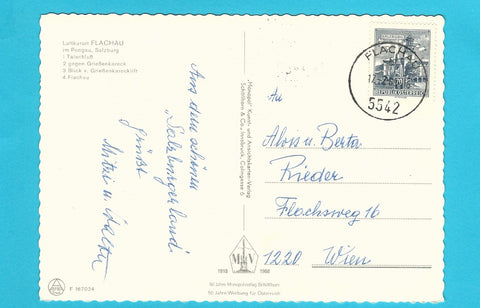 Luftkurort FLACHAU
im Pongau, Salzburg
1 Talschluß
2 gegen Grießenkareck
3 Blick v. Grießenkarecklift
4 Flachau
Aus dem schönen
„Salzburgerland"
grüßt
Mitzi u. Walter
F 167024
„Monopol" Kunst- und Ansichtskarten-Verlag
Schöllhorn & Co., Innsbruck, Colingasse 5
1918 1968
50 Jahre Monopolverlag Schöllhorn
50 Jahre Werbung für Österreich
FLACHAU
5542
REPUBLIK ÖSTERREICH
An
Alois u. Berta
Rieder
Flachsweg 16
1220 Wien